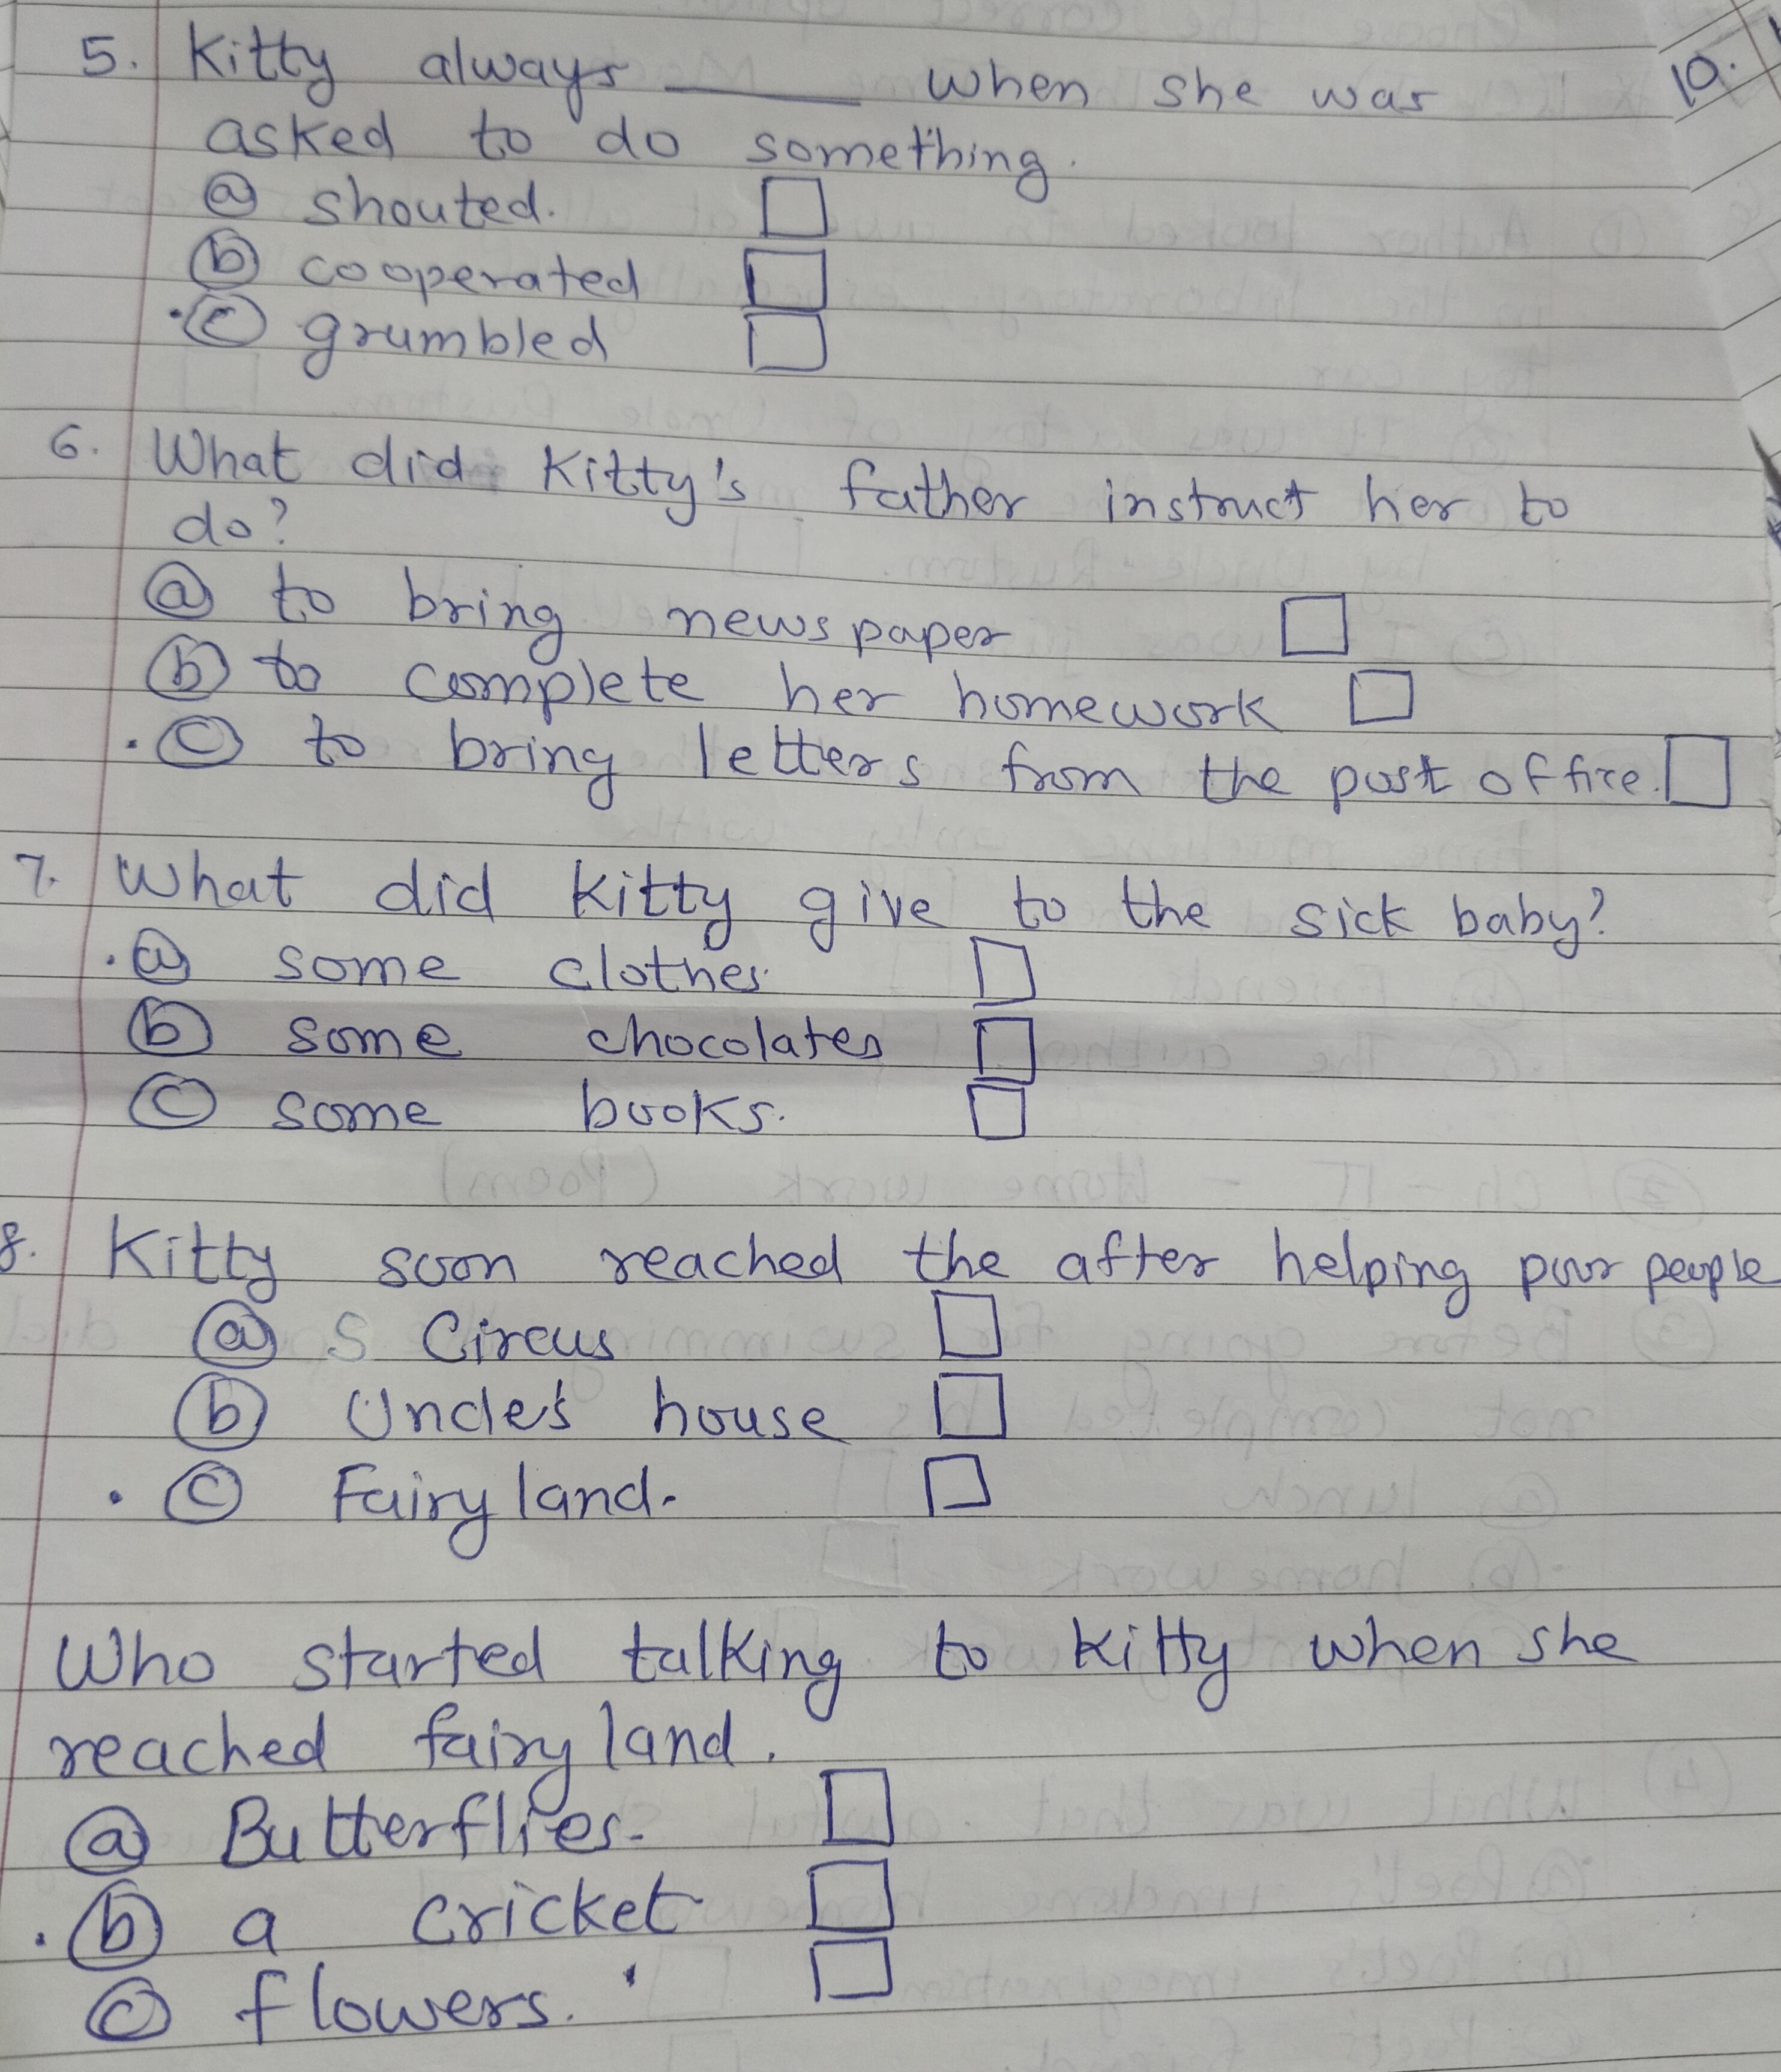 5. Kitty always ______ when she was
asked to do something.
(a) shouted. □
(b) cooperated □
. (c) grumbled □
10.
6. What did Kitty's father instruct her to
do?
(a) to bring newspaper □
(b) to complete her homework □
. (c) to bring letters from the post office. □
7. What did Kitty give to the sick baby?
. (a) some clothes □
(b) some chocolates □
(c) some books. □
8. Kitty soon reached the after helping poor people
(a) S Circus □
(b) Uncle's house □
. (c) Fairy land. □
Who started talking to Kitty when she
reached fairy land.
(a) Butterflies. □
. (b) a cricket □
(c) flowers. □